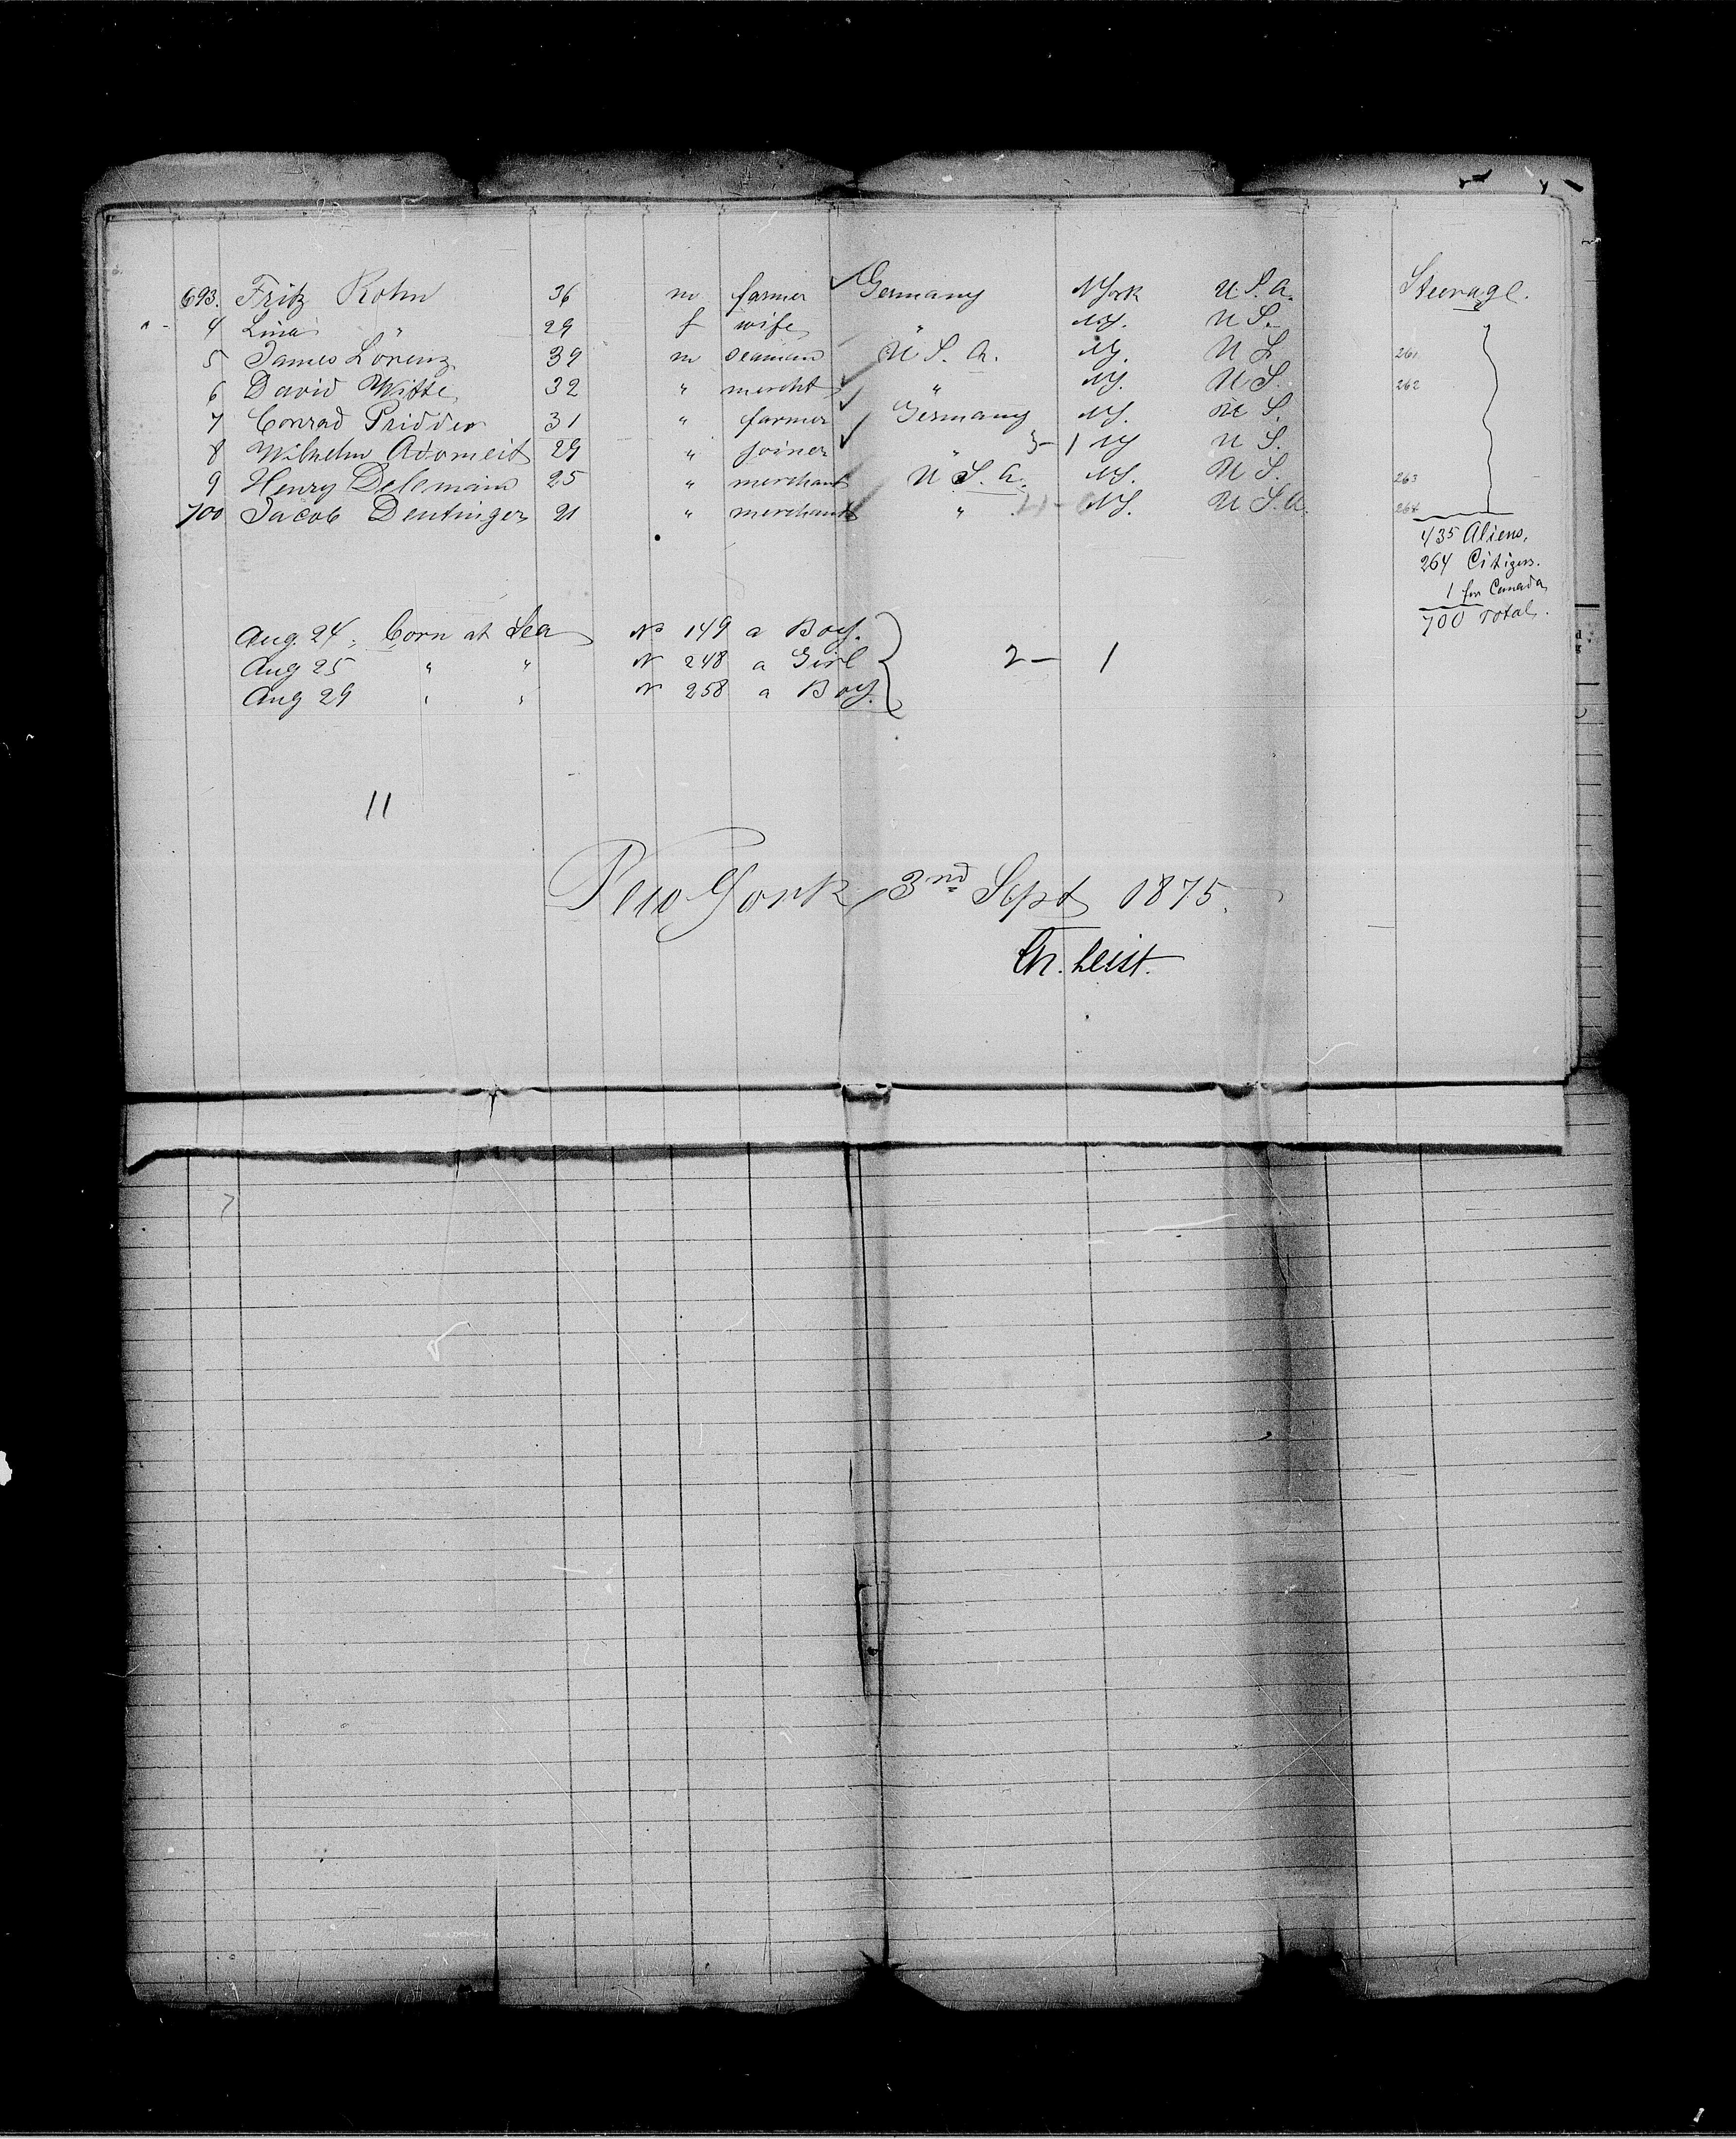 693. Fritz Rohn 36 m farmer Germany NYork U.S.A. Steerage.
" - 4 Lina " 29 f wife " NY. U S.
5 James Lorenz 39 m seaman U. S. A. NY. U S 261
6 David Witte 32 " mercht " NY. U S. 262
7 Conrad Pridder 31 " farmer Germany NY. U S.
8 Wilhelm Adomeit 29 " joiner " 3- 1 NY U S.
9 Henry Delemain 25 " merchant U. S. A. NY. U S. 263
700 Jacob Deutinger 21 " merchant " NY. U S. A. 264
435 Aliens,
264 Citizens.
1 for Canada
700 Total.
Aug. 24, born at Sea No 149 a Boy.
Aug 25 " " N 248 a Girl 2 - 1
Aug 29 " " N 258 a Boy.
11
New York, 3nd Sept 1875.
Ch. Leist.